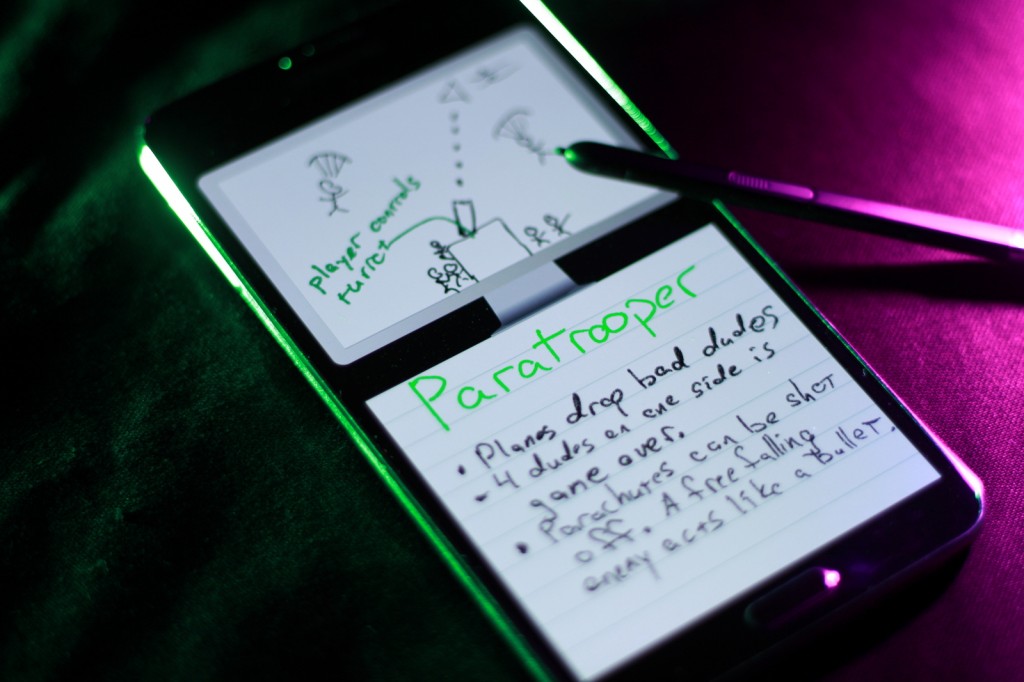 player controls
turret
Paratrooper
• Planes drop bad dudes
• 4 dudes on one side is
game over.
• Parachutes can be shot
off. A free falling
enemy acts like a bullet.